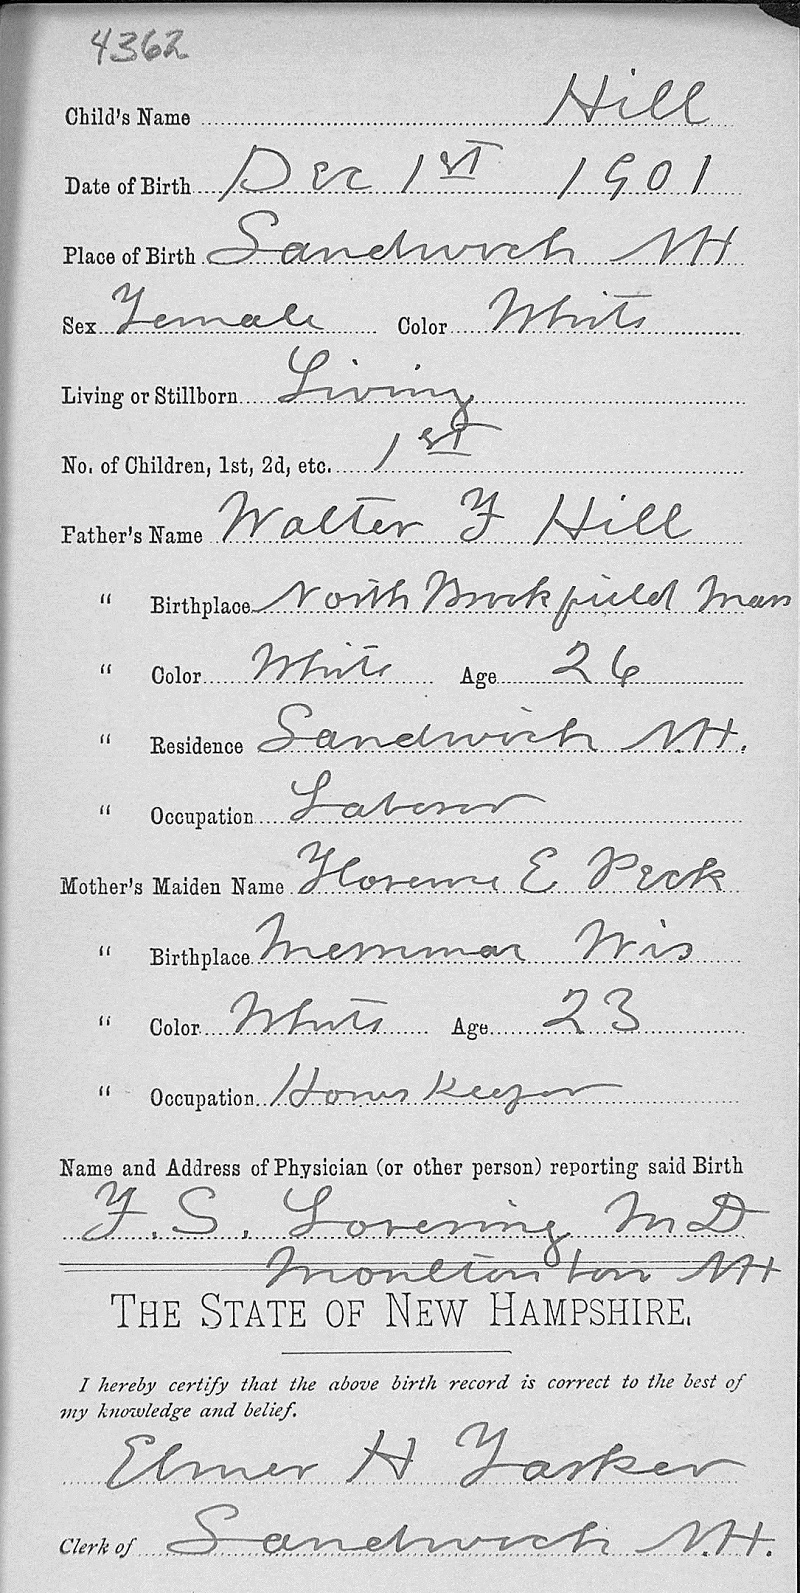 4362
Child's Name Hill
Date of Birth Dec 1st 1901
Place of Birth Sandwich NH
Sex Female Color White
Living or Stillborn Living
No. of Children, 1st, 2d, etc. 1st
Father's Name Walter F Hill
" Birthplace North Brookfield Mass
" Color White Age 26
" Residence Sandwich N.H.
" Occupation Laborer
Mother's Maiden Name Florence E Peck
" Birthplace Merrimac Wis
" Color White Age 23
" Occupation House Keeper
Name and Address of Physician (or other person) reporting said Birth
F. S. Lovering M D
Moultonboro NH
THE STATE OF NEW HAMPSHIRE.
I hereby certify that the above birth record is correct to the best of
my knowledge and belief.
Elmer H
Clerk of Sandwich N.H.